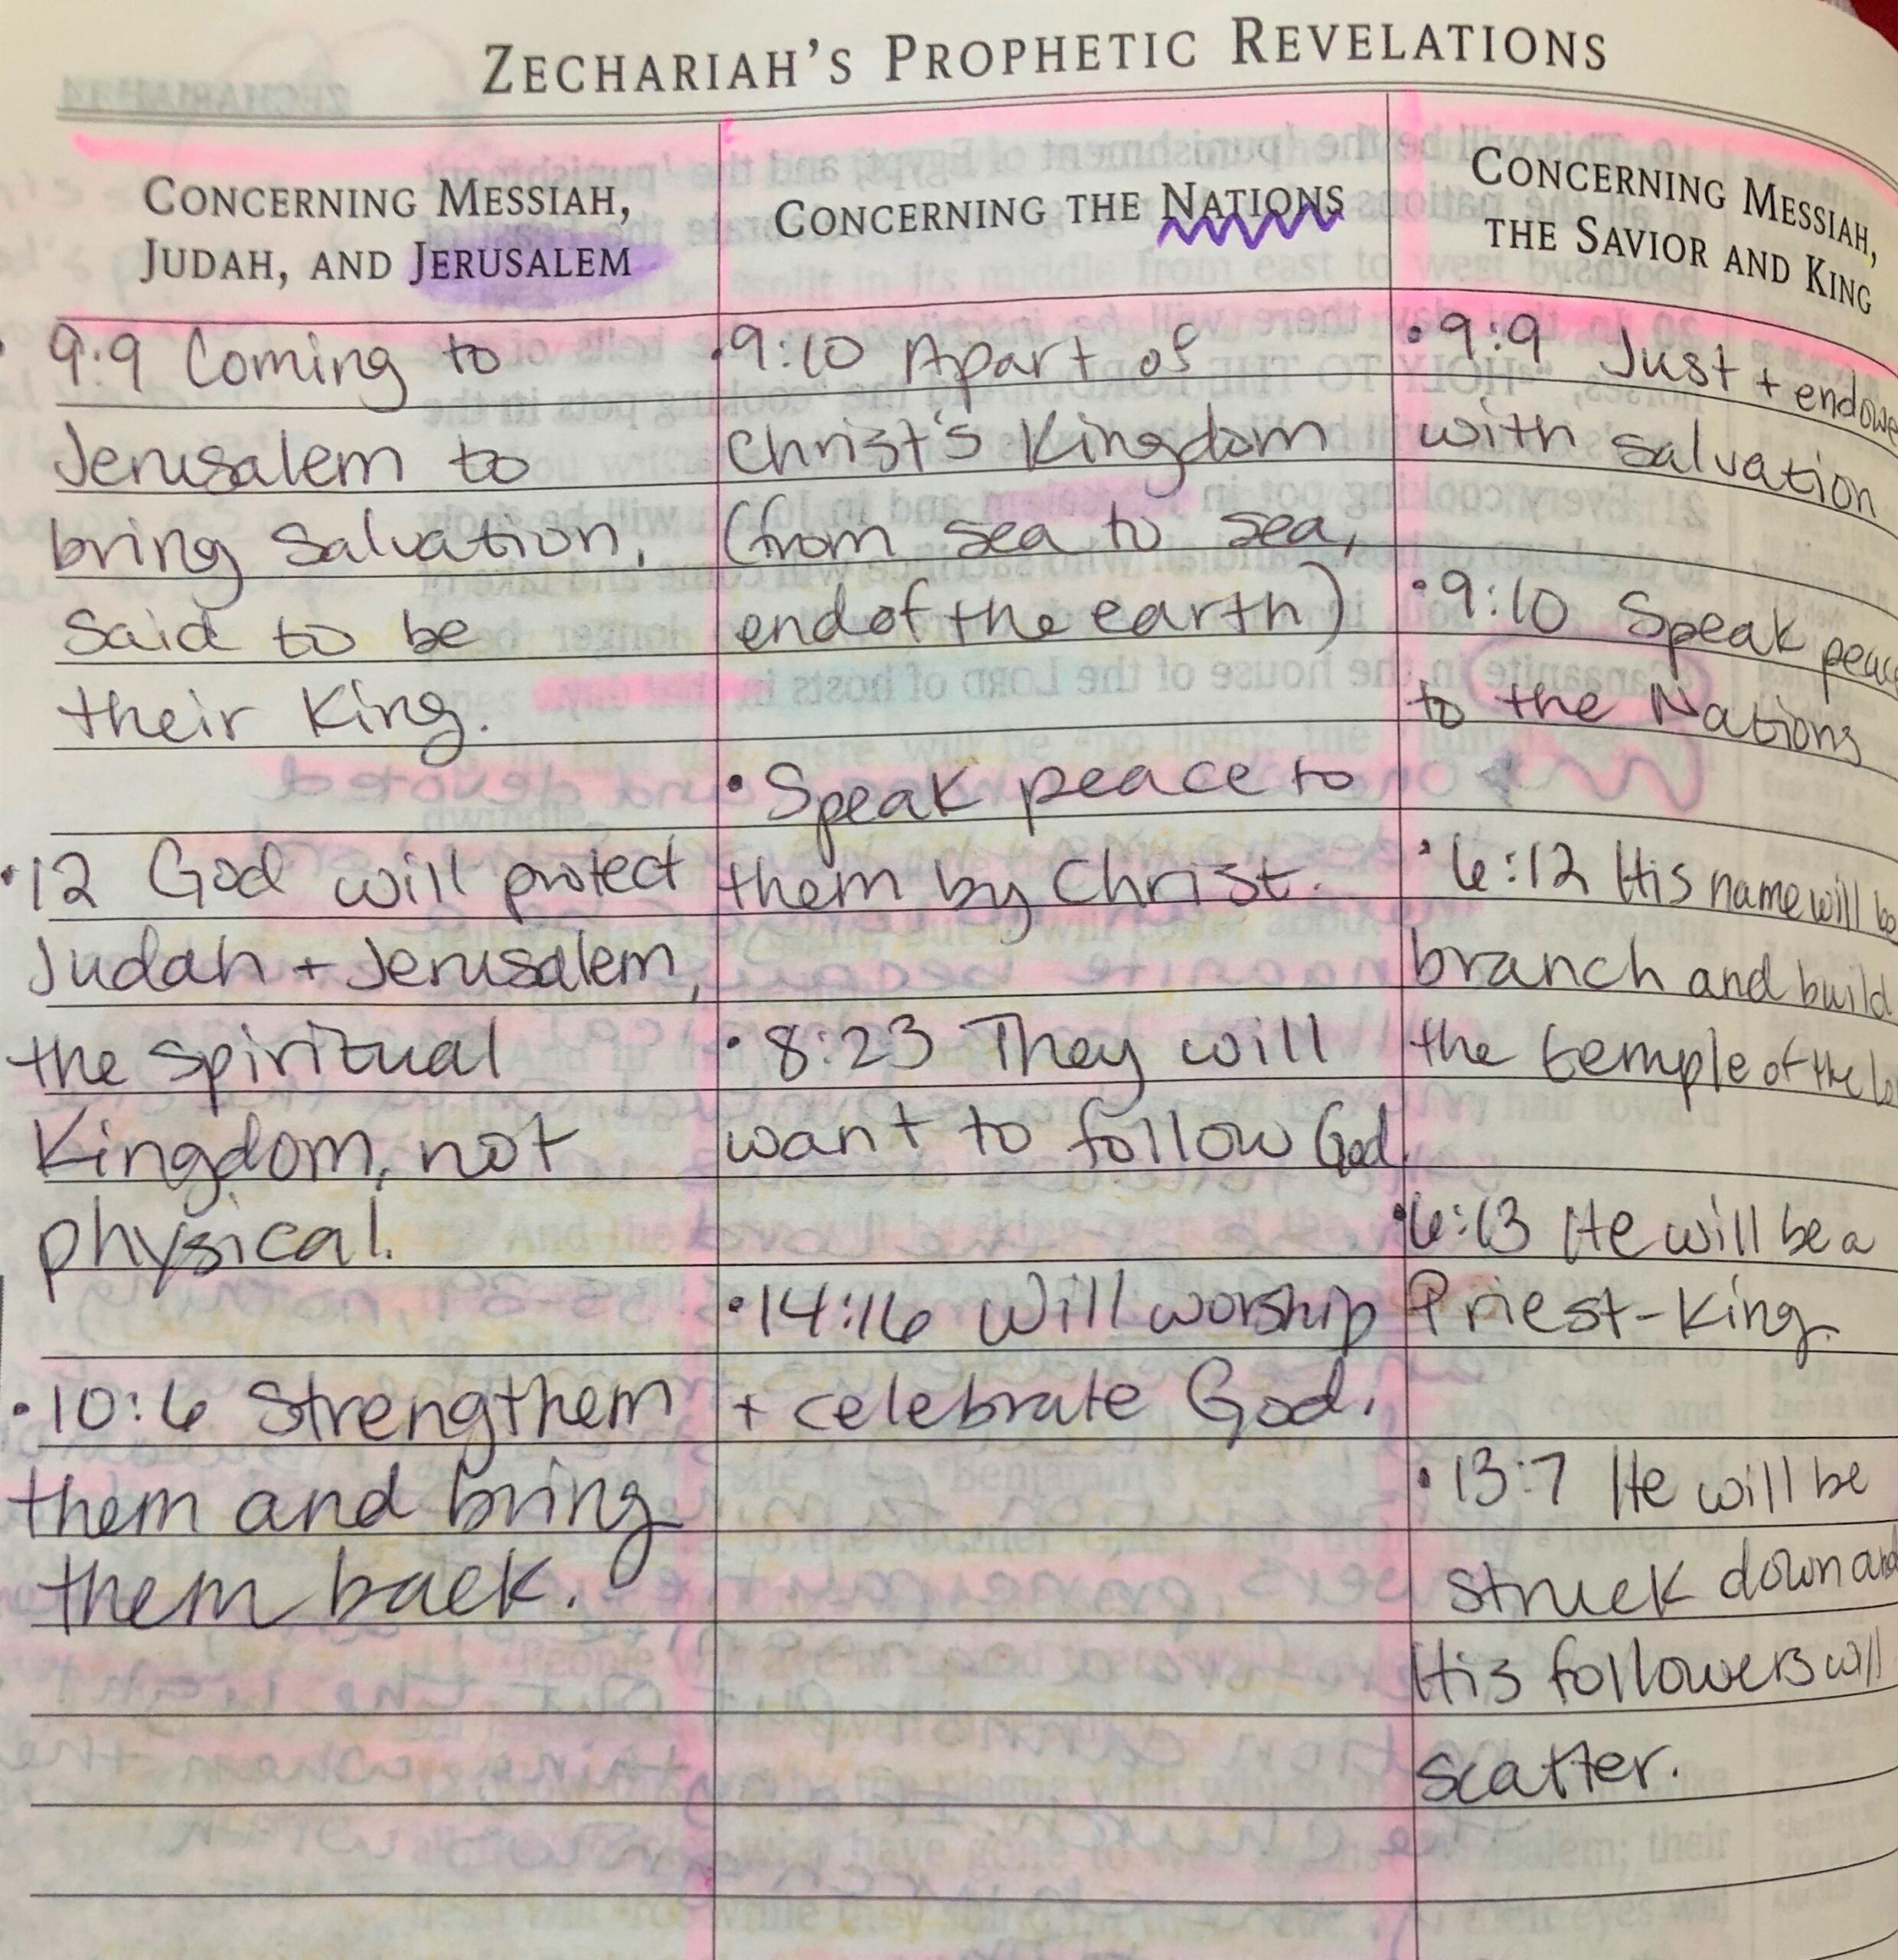 ZECHARIAH'S PROPHETIC REVELATIONS
CONCERNING MESSIAH,
JUDAH, AND JERUSALEM
9:9 Coming to
Jerusalem to
bring Salvation,
Said to be
their King.
•12 God will protect
Judah + Jerusalem,
the spiritual
Kingdom, not
physical.
•10:6 Strengthem
them and bring
them back.
CONCERNING THE NATIONS
•9:10 Apart of
Christ's Kingdom
(from sea to sea,
end of the earth)
•Speak peace to
them by Christ.
•8:23 They will
want to follow God.
•14:16 Will worship
+ celebrate God.
CONCERNING MESSIAH,
THE SAVIOR AND KING
•9:9 Just + endowe
with salvation
•9:10 Speak peac
to the Nations
•6:12 His name will be
branch and build
the temple of the Lo
•6:13 He will be a
Priest-King.
•13:7 He will be
struck down and
His followers will
scatter.